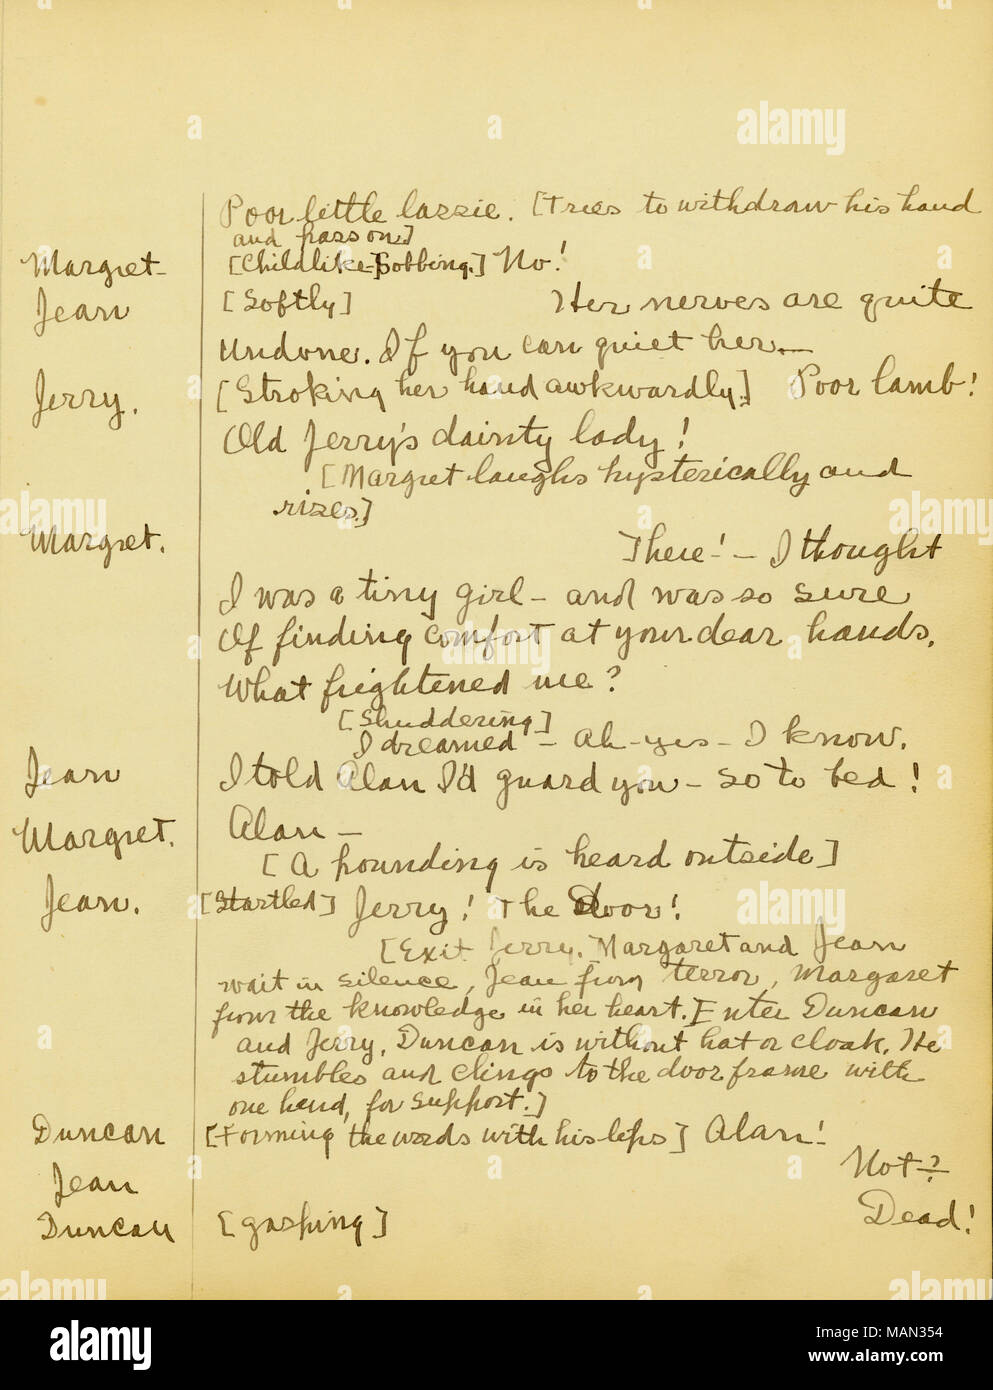 Poor little lassie. [Tries to withdraw his hand
and pass on]
Margret- [Childlike-] Sobbing.] No!
Jean [Softly] Her nerves are quite
undone. If you can quiet her.—
Jerry. [Stroking her hand awkwardly.] Poor lamb!
Old Jerry's dainty lady!
[Margret laughs hysterically and
rises.]
Margret. There! - I thought
I was a tiny girl - and was so sure
Of finding comfort at your dear hands.
What frightened me?
[Shuddering]
I dreamed - Ah - yes - I know.
Jean I told Alan I'd guard you - so to bed!
Margret. Alan -
[A pounding is heard outside]
Jean. [Startled] Jerry! The Door!
[Exit Jerry. Margaret and Jean
wait in silence, Jean from terror, Margaret
from the knowledge in her heart. Enter Duncan
and Jerry. Duncan is without hat or cloak. He
stumbles and clings to the door frame with
one hand, for support.]
Duncan [Forming the words with his lips] Alan!
Jean Not?—
Duncan [gasping] Dead!
alamy
a
Image ID: MAN354
www.alamy.com